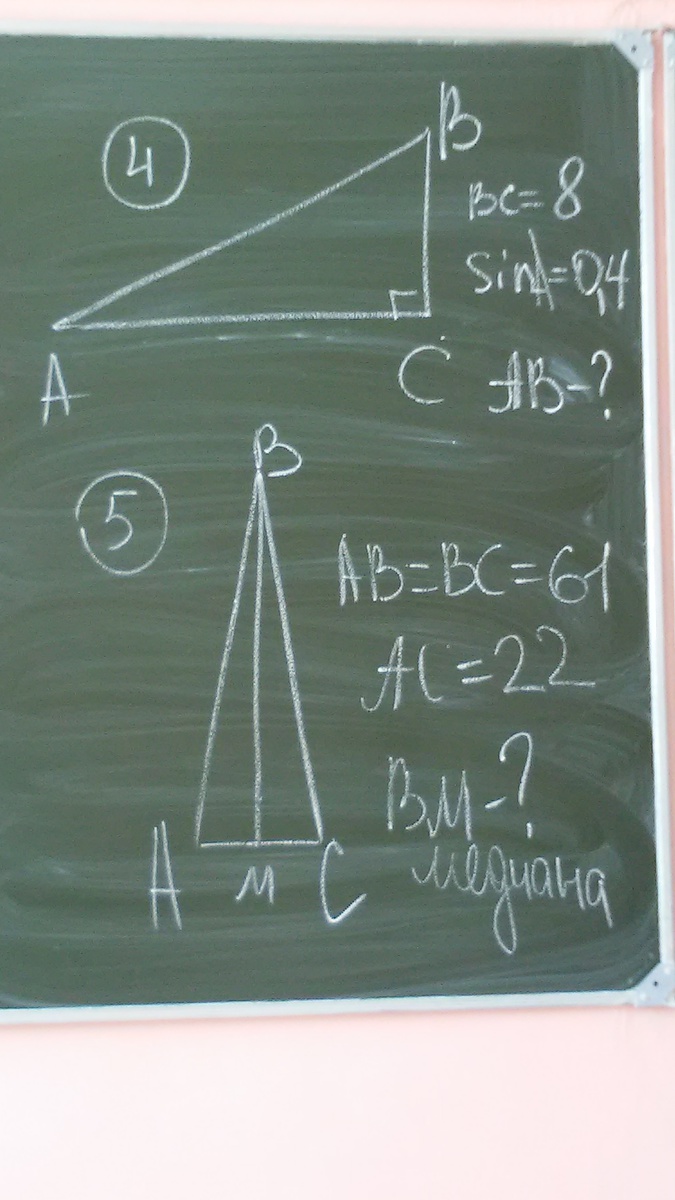 4
B
BC=8
sinA=0,4
A
C
AB-?
5
B
AB=BC=61
AC=22
BM-?
медиана
A
M
C